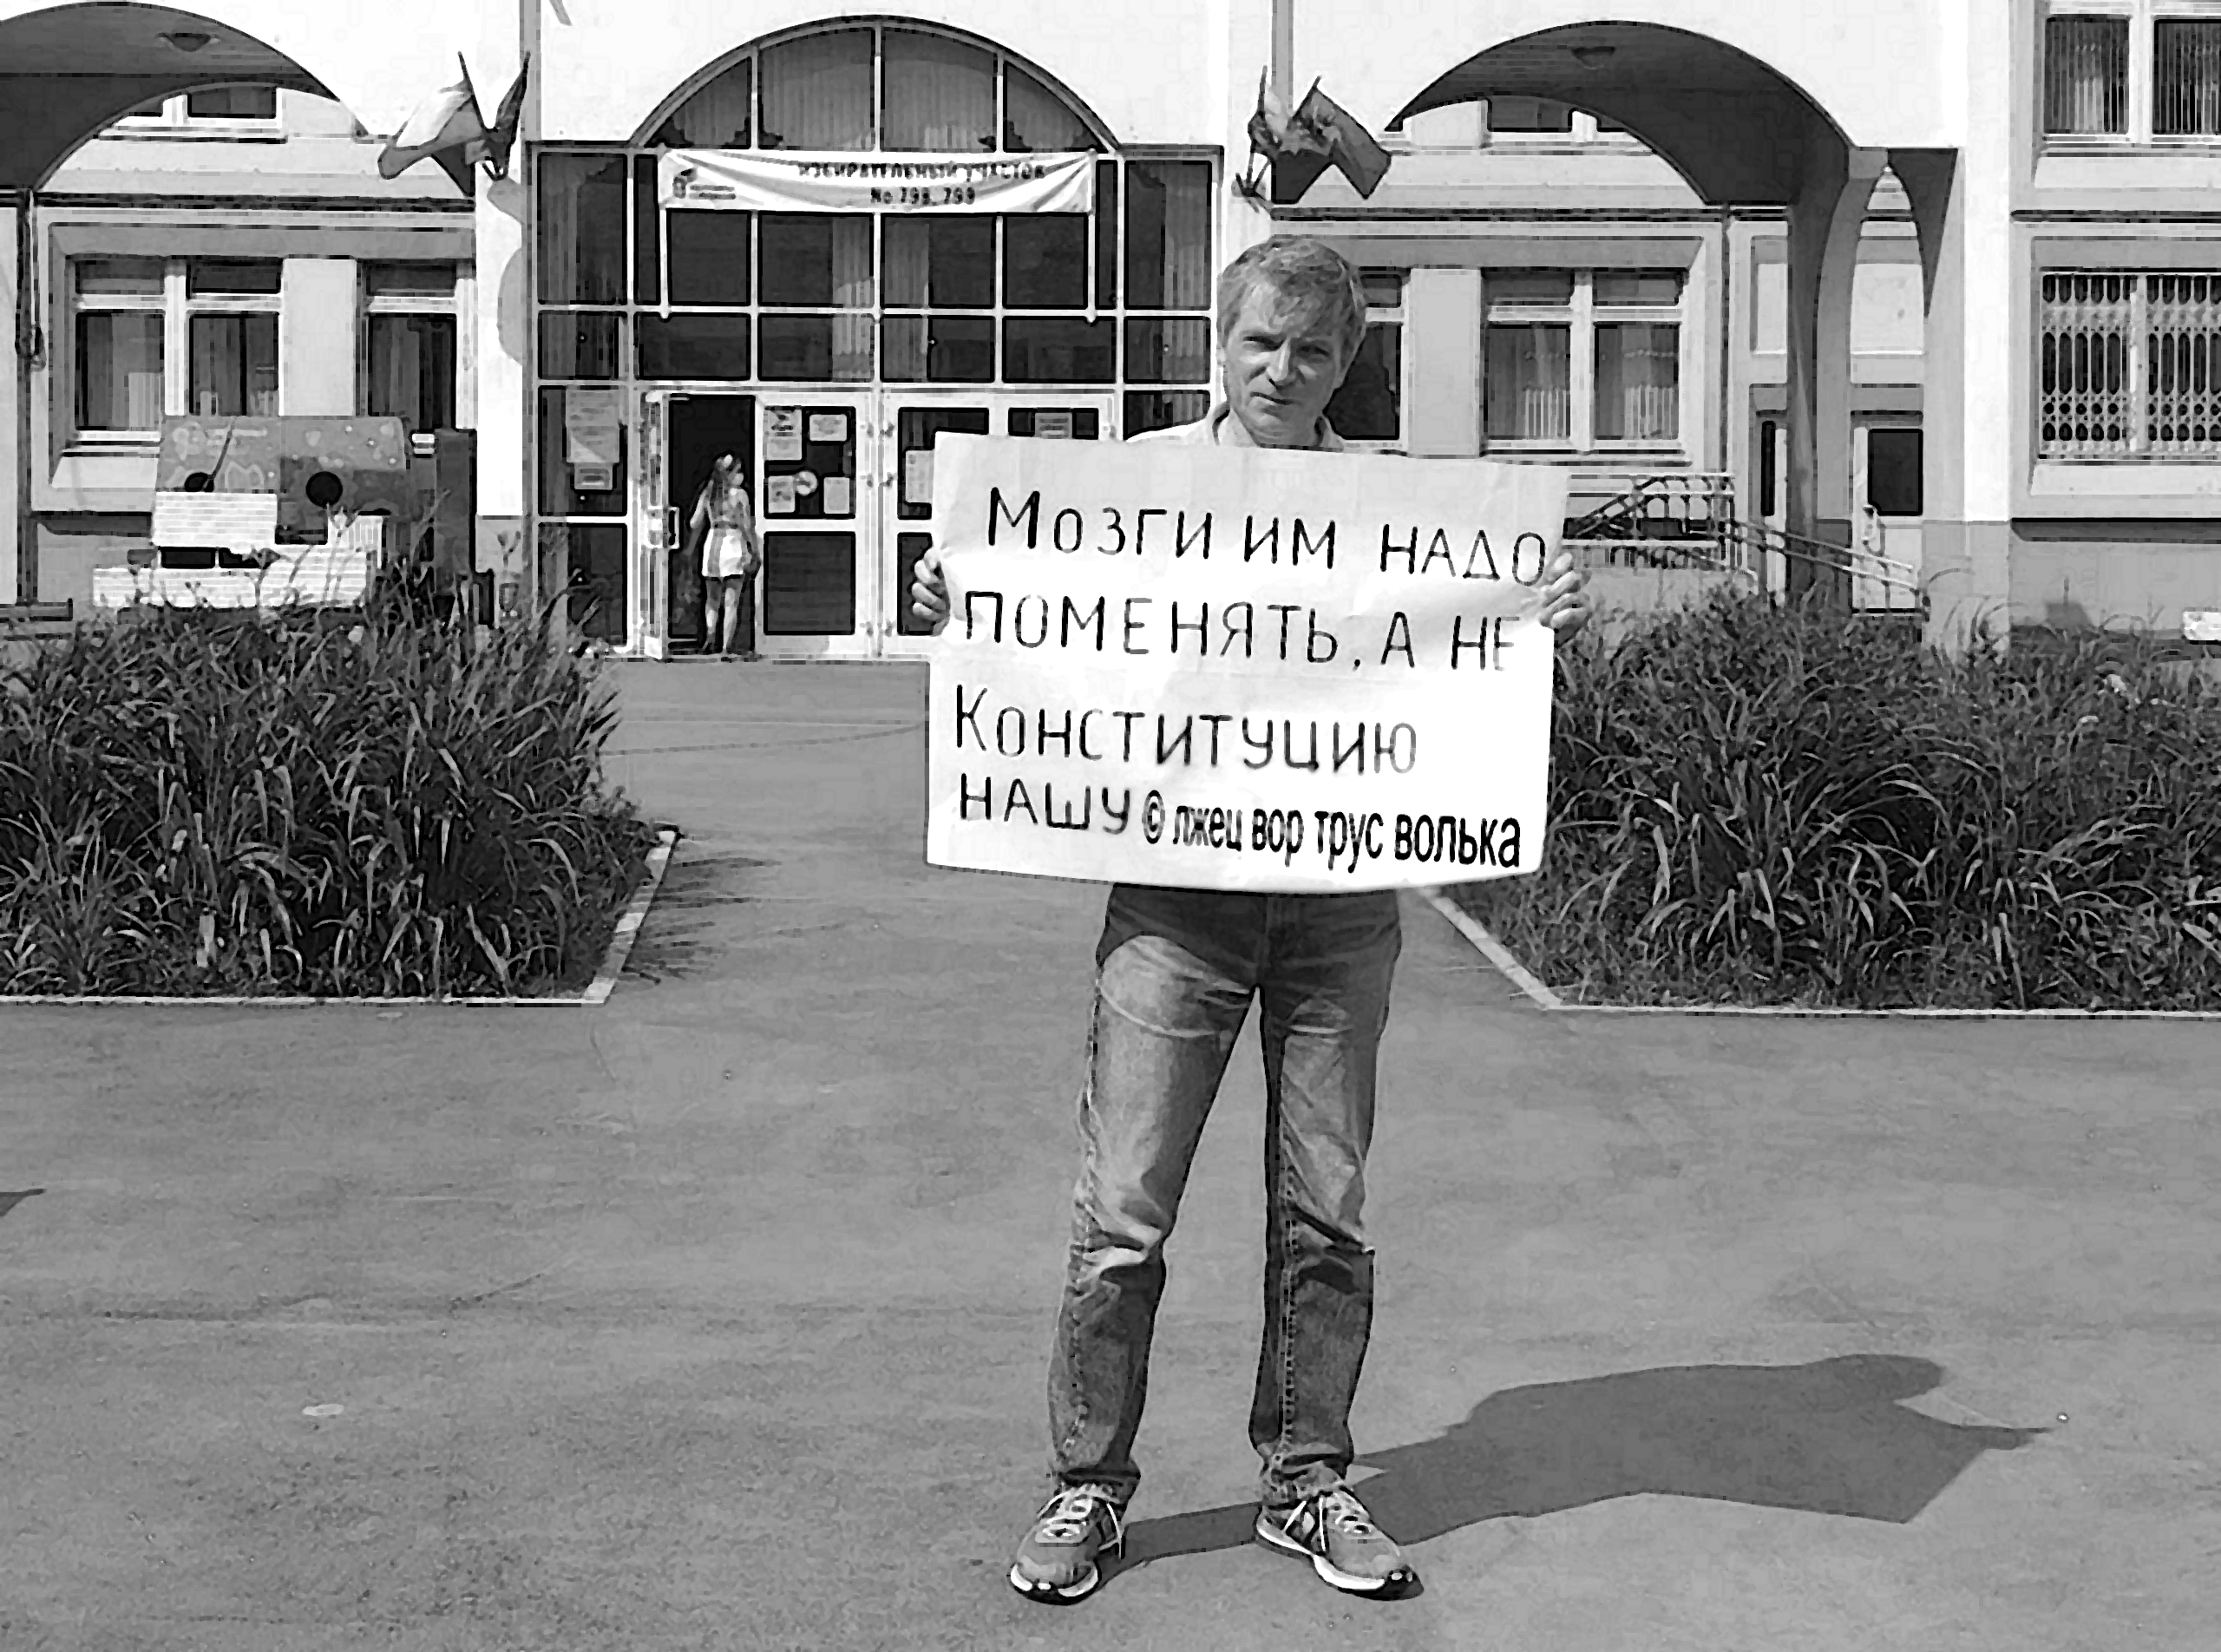 ИЗБИРАТЕЛЬНЫЙ УЧАСТОК
№ 798, 799
Мозги им надо
поменять, а не
Конституцию
нашу © лжец вор трус волька